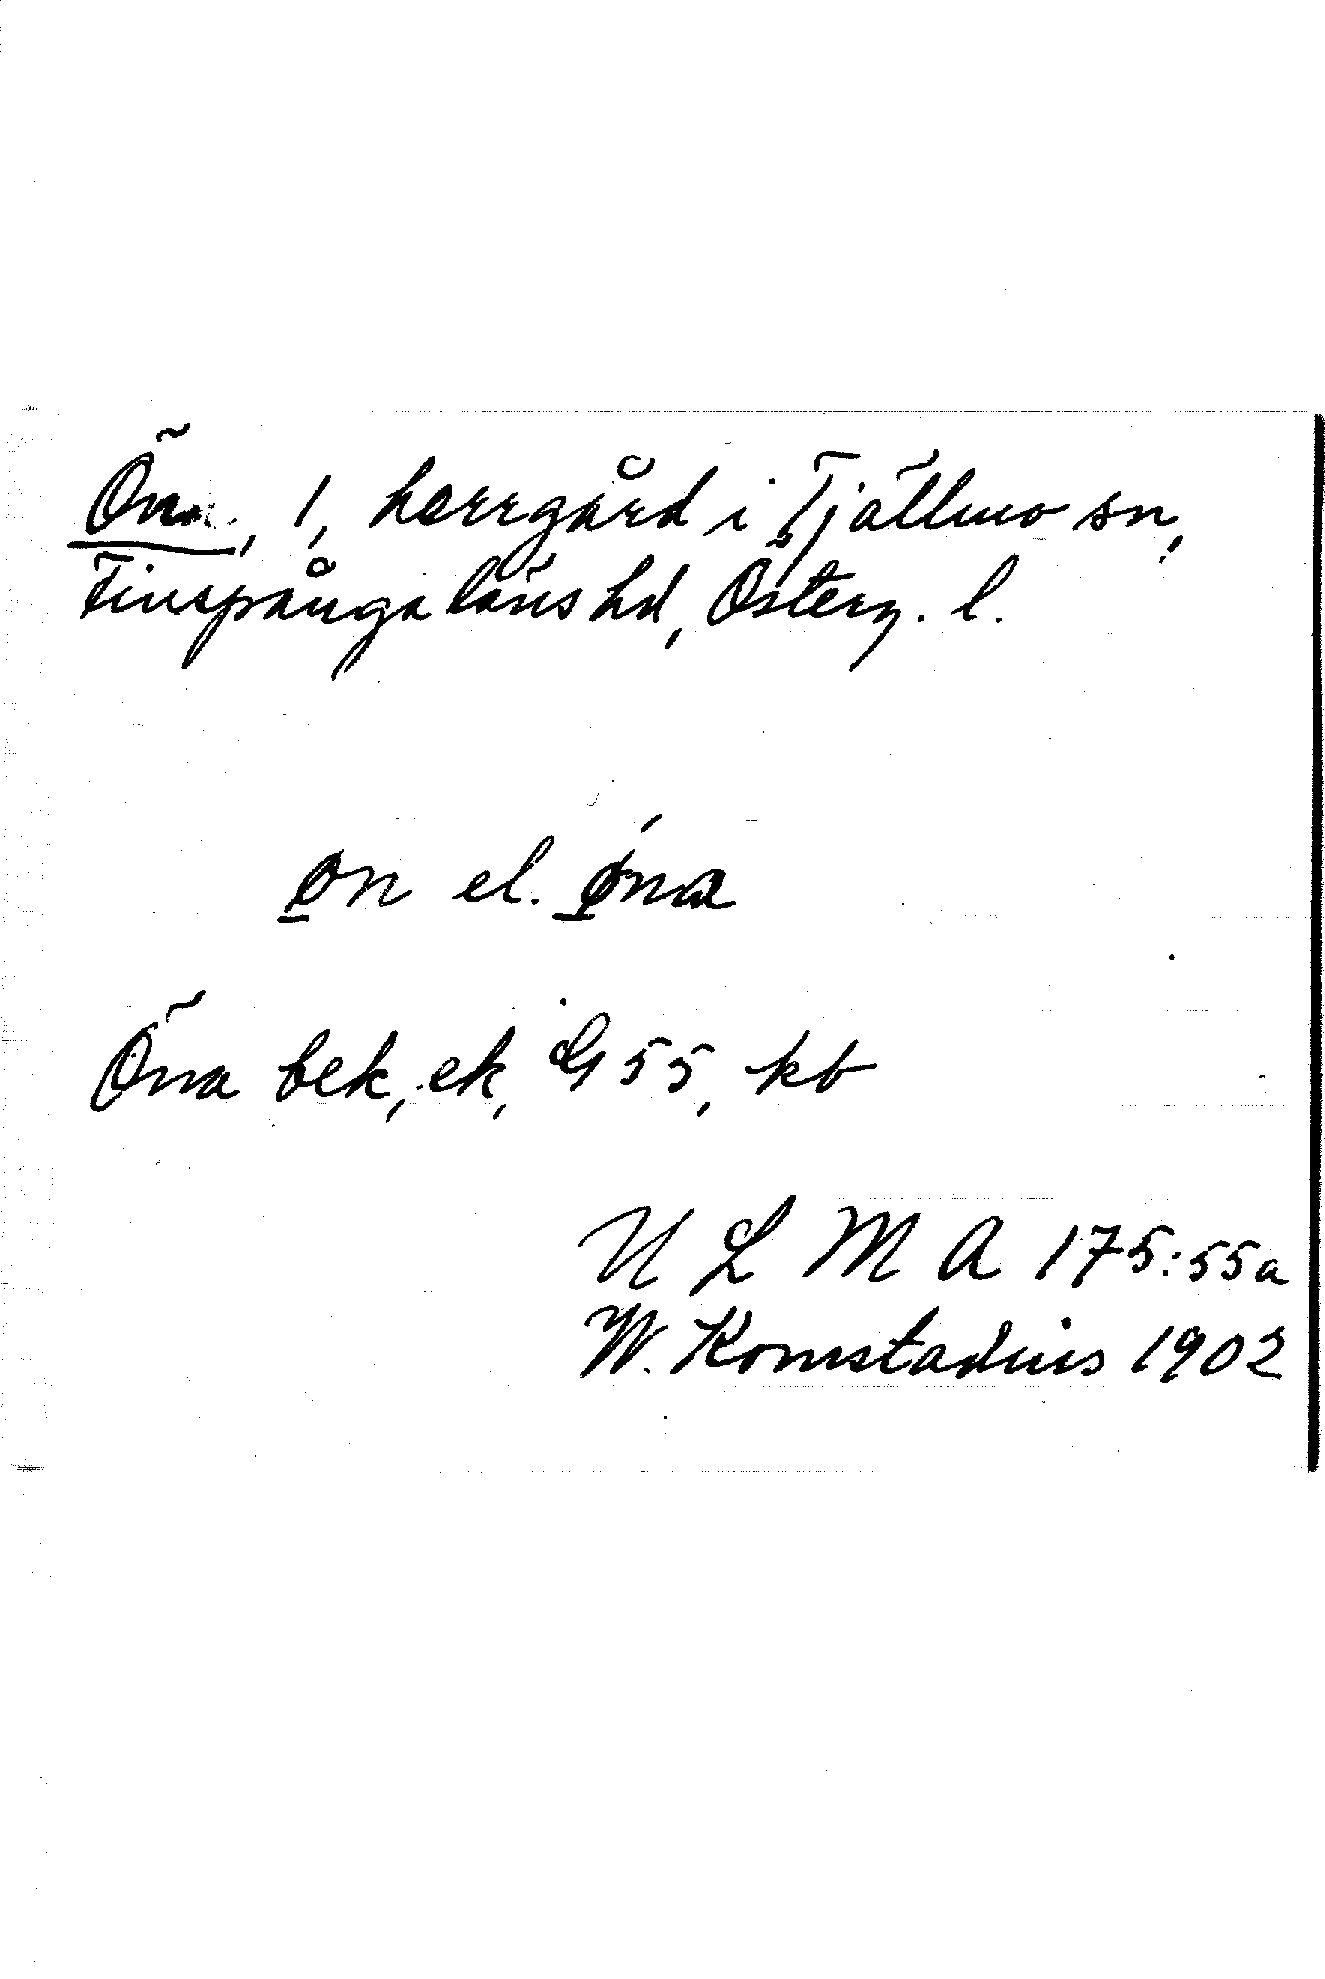 Öna, 1, herrgård i Tjällmo sn,
Finspånga läns hd, Österg. l.
øn el. ǿna
Öna bek, ek, G 55, kb
ULMA 175:55a
W. Komstadius 1902